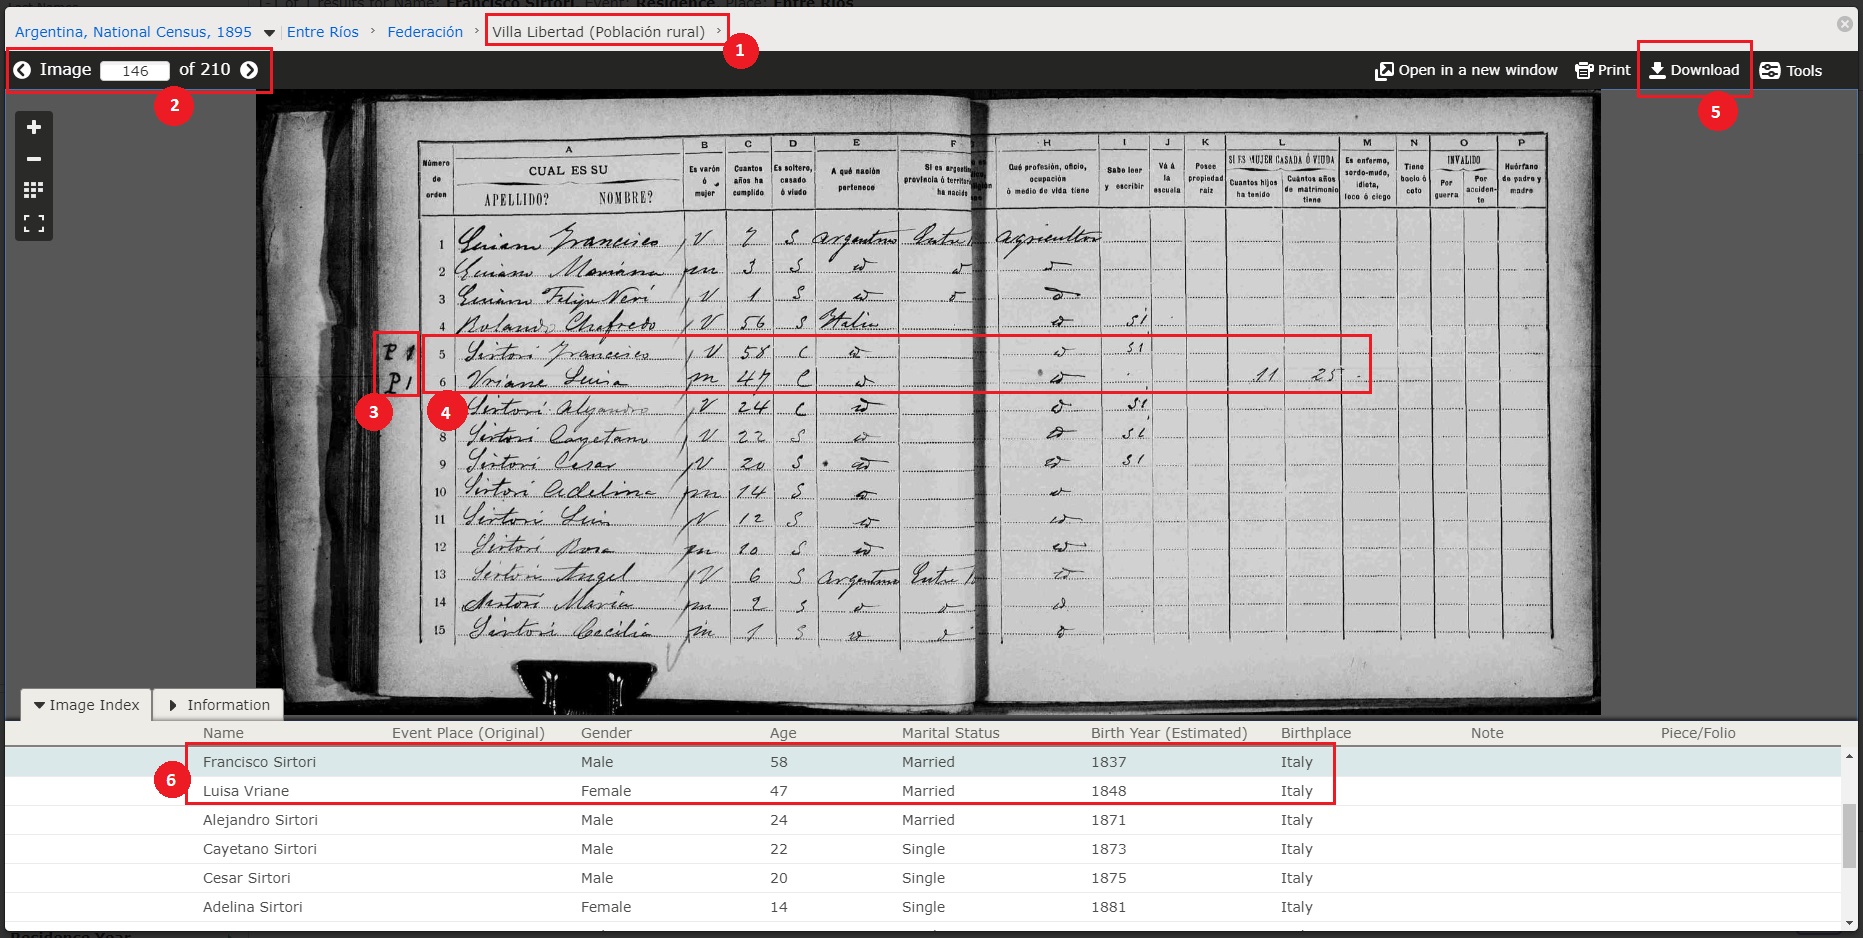 1-1 of 1 results for Name: Francisco Sirtori, Event: Residence, Place: Entre Ríos
Argentina, National Census, 1895 Entre Ríos › Federación › Villa Libertad (Población rural) ›
1
Image 146 of 210
Open in a new window Print Download Tools
2
5
A B C D E F H I J K L M N O P
Número de orden
CUAL ES SU
APELLIDO? NOMBRE?
Es varón ó mujer
Cuantos años ha cumplido
Es soltero, casado ó viudo
A qué nación pertenece
Si es argentino
provincia ó territorio
ha nacido
Qué profesión, oficio, ocupación ó medio de vida tiene
Sabe leer y escribir
Vá á la escuela
Posee propiedad raiz
SI ES MUJER CASADA Ó VIUDA
Cuantos hijos ha tenido
Cuántos años de matrimonio tiene
Es enfermo, sordo-mudo, idiota, loco ó ciego
Tiene bocio ó coto
INVALIDO
Por guerra
Por accidente
Huérfano de padre y madre
1 Francisco V 7 S Argentino Entre Agricultor
2 Mariana m 3 S
3 Felipe Neri V 1 S
4 Rolando Chafredo V 56 S Italia si
P1 5 Sirtori Francisco V 58 C si
P1 6 Vriane Luisa m 47 C 11 25
3
4
Sirtori Alejandro V 24 C si
8 Sirtori Cayetano V 22 S si
9 Sirtori Cesar V 20 S si
10 Sirtori Adelina m 14 S
11 Sirtori Luis V 12 S
12 Sirtori Rosa m 10 S
13 Sirtori Angel V 6 S Argentino Entre
14 Sirtori Maria m 2 S
15 Sirtori Cecilia m 1 S
Image Index Information
Name Event Place (Original) Gender Age Marital Status Birth Year (Estimated) Birthplace Note Piece/Folio
6
Francisco Sirtori Male 58 Married 1837 Italy
Luisa Vriane Female 47 Married 1848 Italy
Alejandro Sirtori Male 24 Married 1871 Italy
Cayetano Sirtori Male 22 Single 1873 Italy
Cesar Sirtori Male 20 Single 1875 Italy
Adelina Sirtori Female 14 Single 1881 Italy
Residence Year